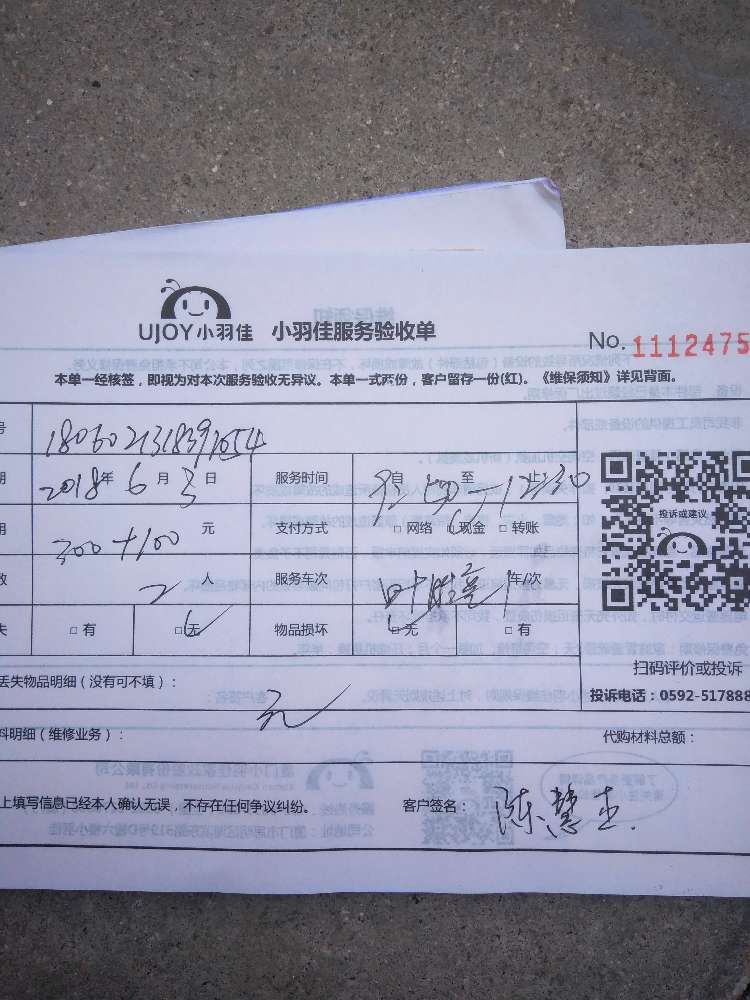 UJOY小羽佳 小羽佳服务验收单
No. 1112475
本单一经核签，即视为对本次服务验收无异议。本单一式两份，客户留存一份(红)。《维保须知》详见背面。
号 1806021318391054
期 2018年6月3日 服务时间 自 至 12:30止
用 300+100 元 支付方式 □ 网络 □现金 □ 转账
数 2 人 服务车次 车/次
失 □ 有 □无 物品损坏 □无 □ 有
投诉或建议
扫码评价或投诉
投诉电话：0592-517888
丢失物品明细（没有可不填）： 无
料明细（维修业务）： 代购材料总额：
上填写信息已经本人确认无误，不存在任何争议纠纷。 客户签名： 陈慧